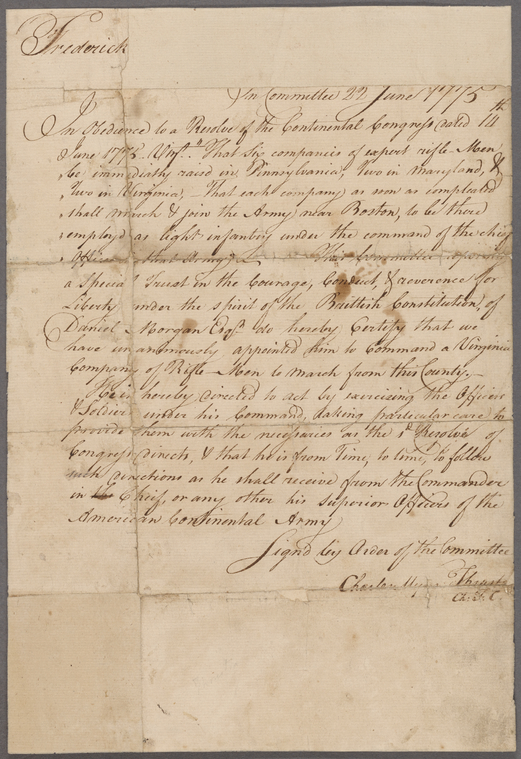 Frederick
In Committee 22 June 1775
In Obedience to a Resolve of the Continental Congress dated 14th
June 1775 Vizt. That Six companies of expert rifle-Men
be immediately raised in Pennsylvania, Two in Maryland, &
Two in Virginia, That each company as soon as compleated
shall march & join the Army near Boston, to be there
employd as light infantry under the command of the chief
Officer of that Army This Committee reposing
a special Trust in the Courage, Conduct, & reverence for
Liberty under the spirit of the Brittish Constitution, of
Daniel Morgan Esqr. do hereby Certify that we
have unanimously appointed him to Command a Virginia
Company of Rifle-Men to march from this County.
He is hereby directed to act by exercising the Officers
& Soldiers under his Command, taking particular care to
provide them with the necessaries as the 1st Resolve of
Congress directs, & that he is from Time, to time, to follow
such directions as he shall receive from the Commander
in Cheif, or any other his superior Officers of the
American Continental Army
Signd by Order of the Committee
Charles Mynn Thruston